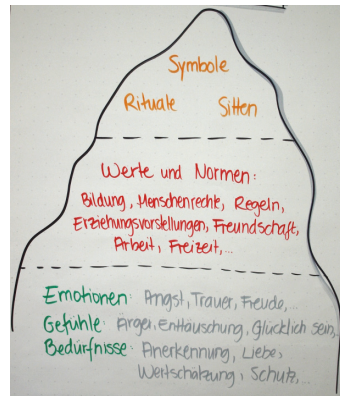 Symbole
Rituale Sitten
Werte und Normen:
Bildung, Menschenrechte, Regeln,
Erziehungsvorstellungen, Freundschaft,
Arbeit, Freizeit,...
Emotionen: Angst, Trauer, Freude,...
Gefühle: Ärger, Enttäuschung, Glücklich sein,..
Bedürfnisse: Anerkennung, Liebe,
Wertschätzung, Schutz,...